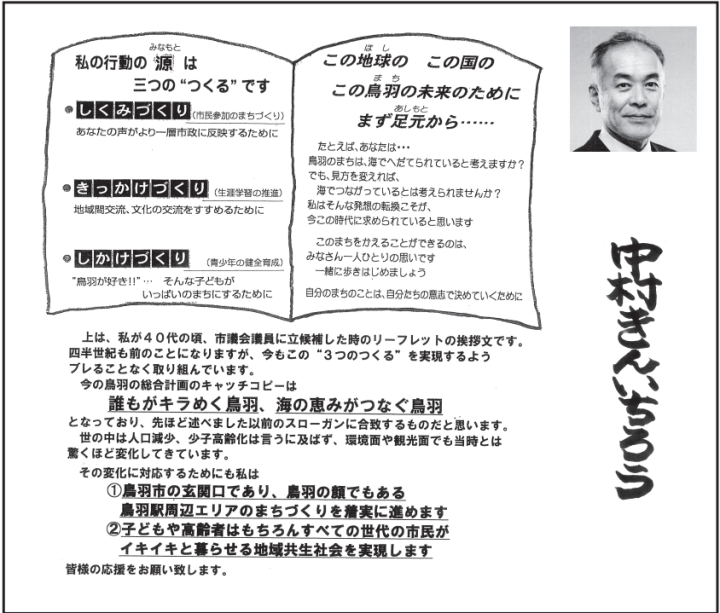 私の行動の源は
みなもと
三つの“つくる”です
しくみづくり(市民参加のまちづくり)
あなたの声がより一層市政に反映するために
きっかけづくり(生涯学習の推進)
地域間交流、文化の交流をすすめるために
しかけづくり(青少年の健全育成)
“鳥羽が好き!!”… そんな子どもが
いっぱいのまちにするために
ほし
この地球の この国の
まち
この鳥羽の未来のために
あしもと
まず足元から……
たとえば、あなたは…
鳥羽のまちは、海でへだてられていると考えますか?
でも、見方を変えれば、
海でつながっているとは考えられませんか?
私はそんな発想の転換こそが、
今この時代に求められていると思います
このまちをかえることができるのは、
みなさん一人ひとりの思いです
一緒に歩きはじめましょう
自分のまちのことは、自分たちの意志で決めていくために
中村きんいちろう
上は、私が40代の頃、市議会議員に立候補した時のリーフレットの挨拶文です。
四半世紀も前のことになりますが、今もこの“3つのつくる”を実現するよう
ブレることなく取り組んでいます。
今の鳥羽の総合計画のキャッチコピーは
誰もがキラめく鳥羽、海の恵みがつなぐ鳥羽
となっており、先ほど述べました以前のスローガンに合致するものだと思います。
世の中は人口減少、少子高齢化は言うに及ばず、環境面や観光面でも当時とは
驚くほど変化してきています。
その変化に対応するためにも私は
①鳥羽市の玄関口であり、鳥羽の顔でもある
鳥羽駅周辺エリアのまちづくりを着実に進めます
②子どもや高齢者はもちろんすべての世代の市民が
イキイキと暮らせる地域共生社会を実現します
皆様の応援をお願い致します。